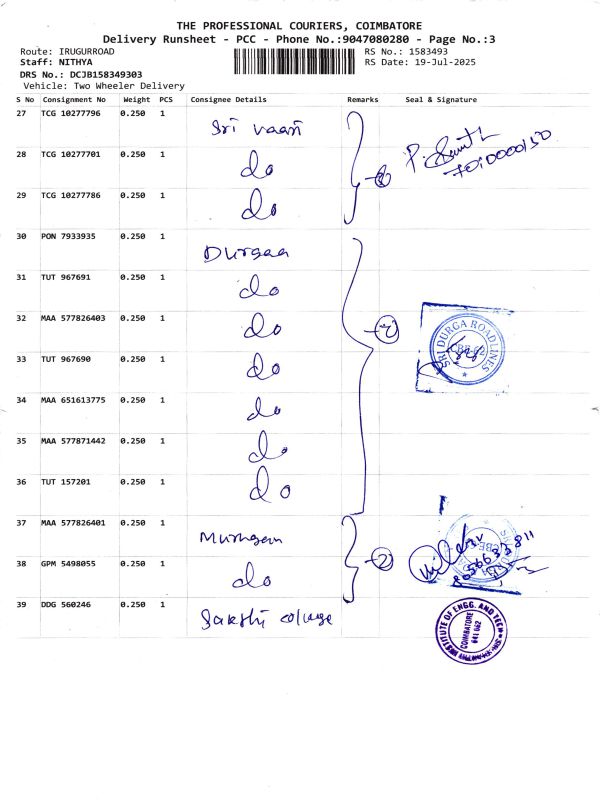 THE PROFESSIONAL COURIERS, COIMBATORE
Delivery Runsheet - PCC - Phone No.:9047080280 - Page No.:3
Route: IRUGURROAD
RS No.: 1583493
Staff: NITHYA
RS Date: 19-Jul-2025
DRS No.: DCJB158349303
Vehicle: Two Wheeler Delivery
S No Consignment No Weight PCS Consignee Details Remarks Seal & Signature
27 TCG 10277796 0.250 1 Sri Vaari
28 TCG 10277701 0.250 1 do
29 TCG 10277786 0.250 1 do
30 PON 7933935 0.250 1 Durgaa
31 TUT 967691 0.250 1 do
32 MAA 577826403 0.250 1 do
SRI DURGA ROADLINES
33 TUT 967690 0.250 1 do
34 MAA 651613775 0.250 1 do
35 MAA 577871442 0.250 1 do
36 TUT 157201 0.250 1 do
37 MAA 577826401 0.250 1 Murugan
2
38 GPM 5498055 0.250 1 do
39 DDG 560246 0.250 1 Sakthi college
INSTITUTE OF ENGG. AND TECH
COIMBATORE
641 062